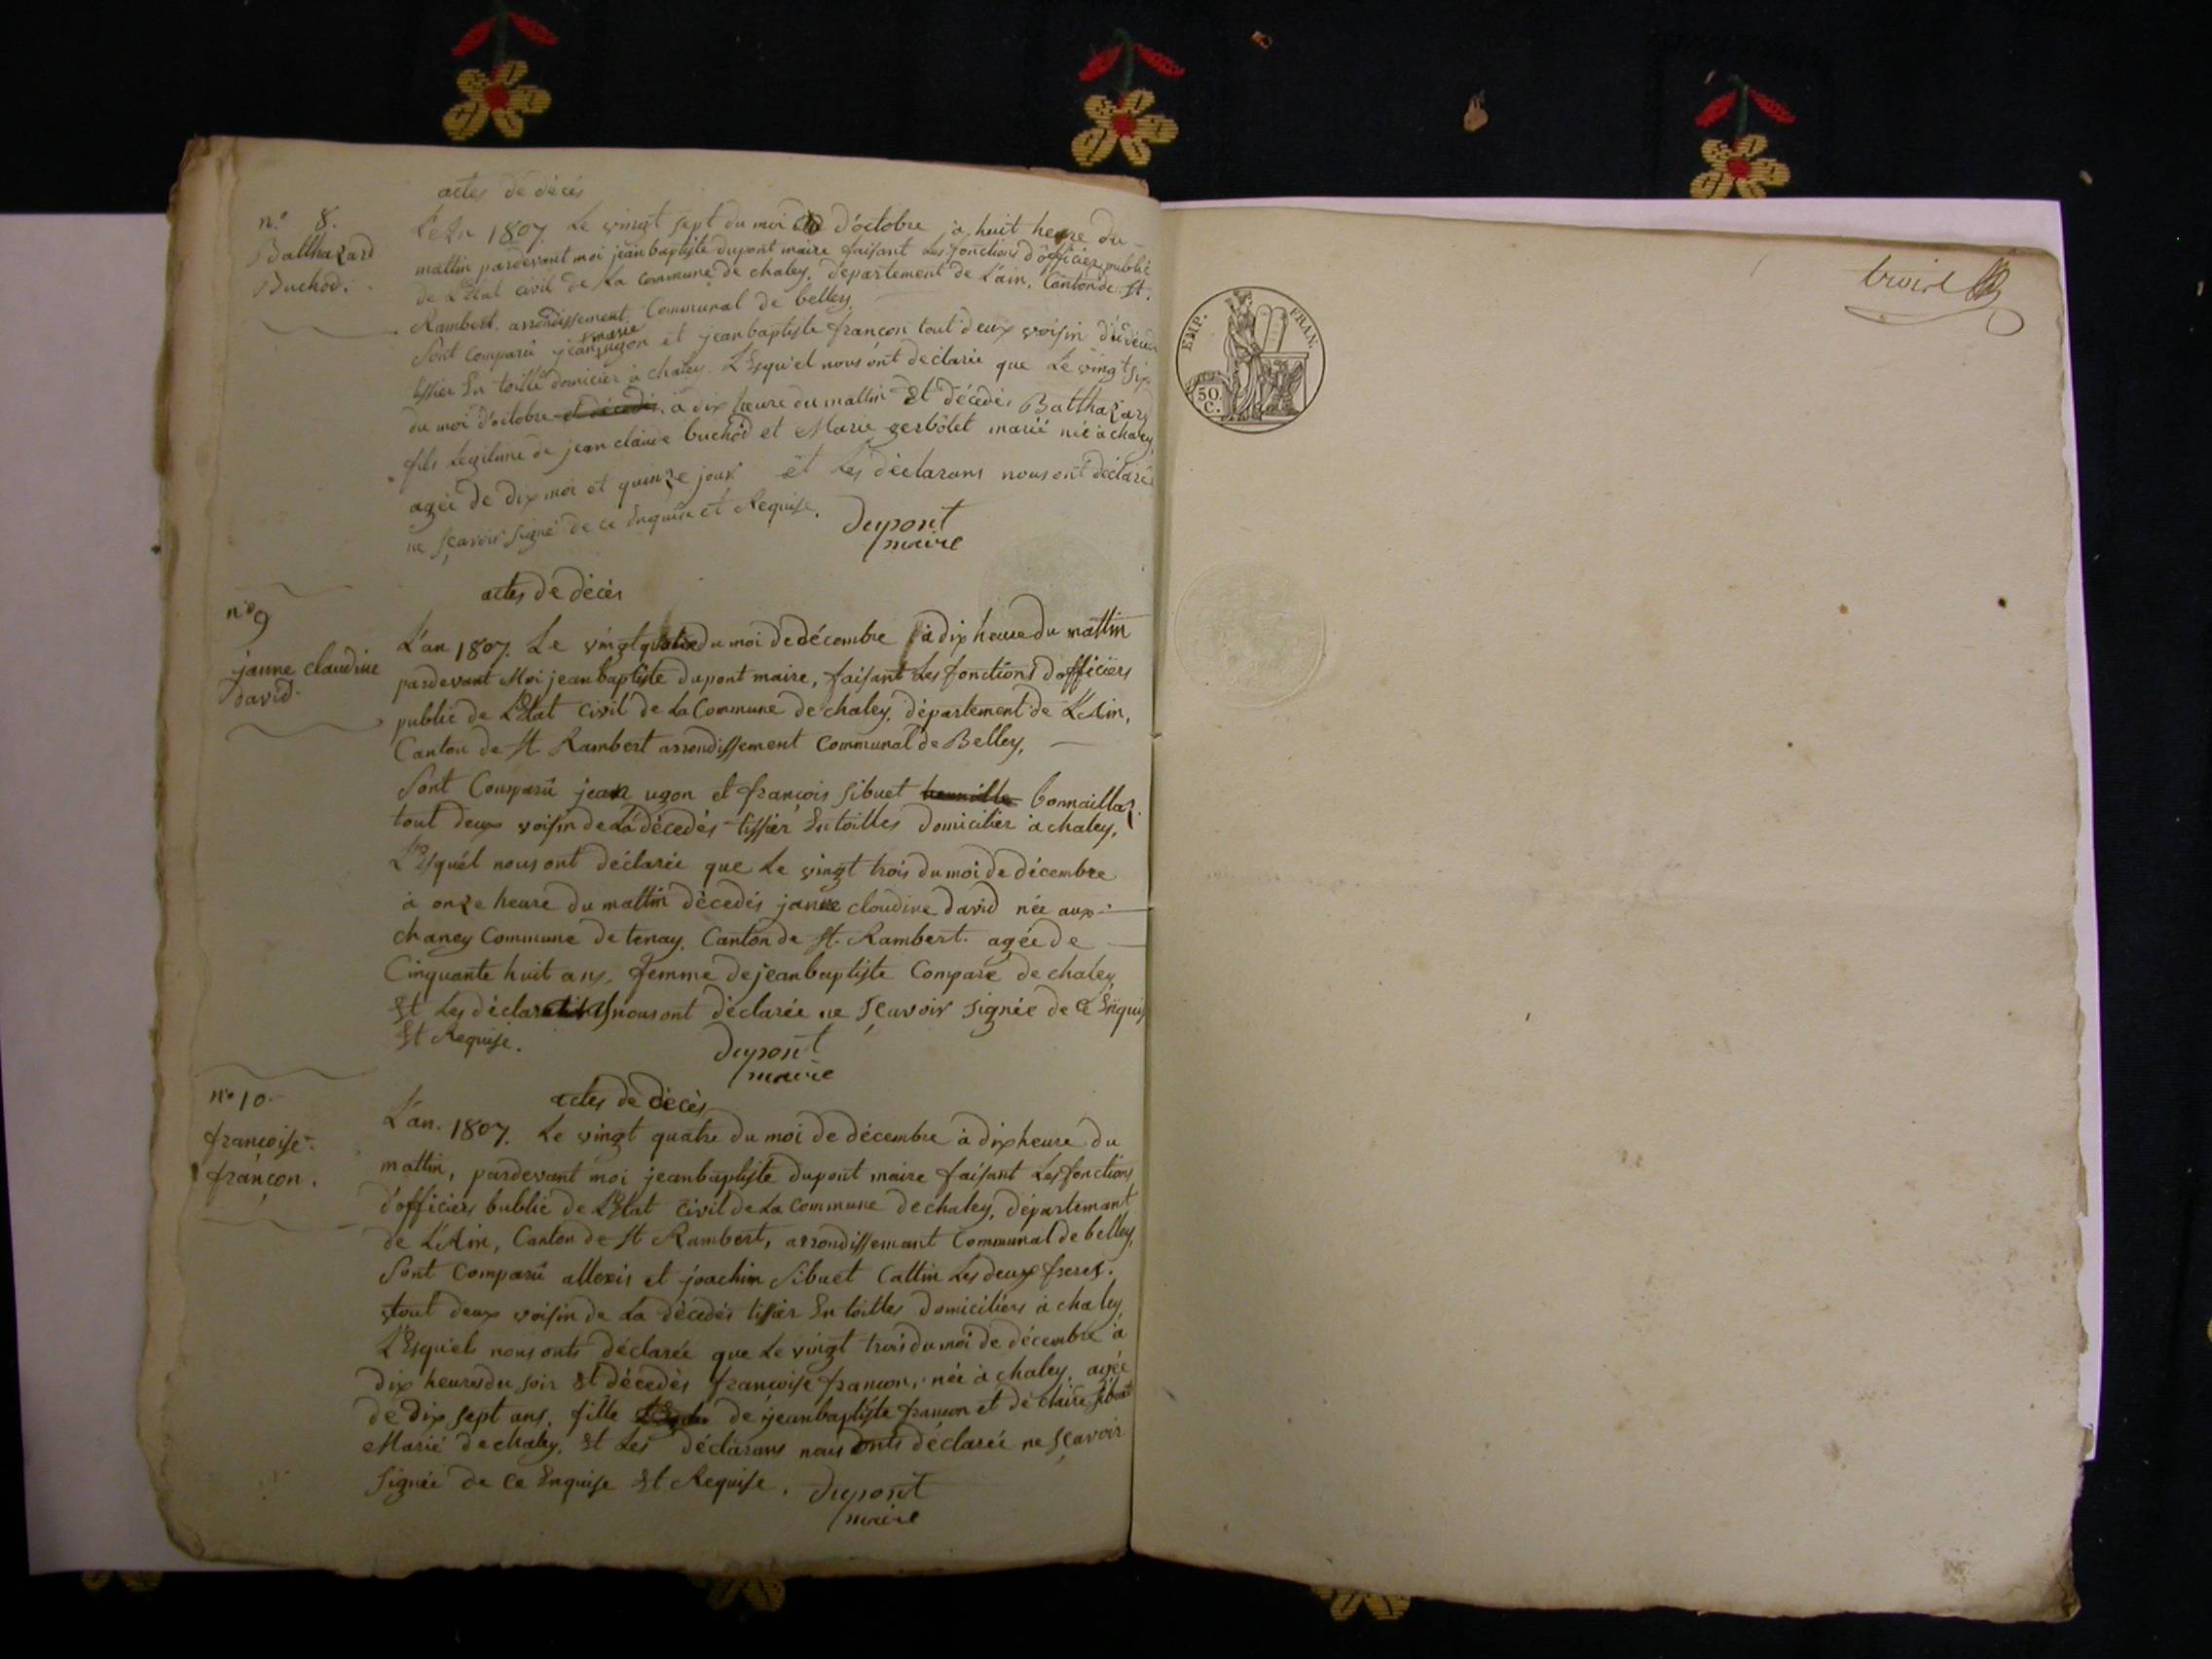 actes de décés
n.° 8.
Balthazard
Buchod.
L'an 1807. Le vingt sept du moi d'octobre à huit heure du
mattin pardevant moi jean baptiste dupont maire faisant Les fonctions d'officier public
de L'Etat civil de La commune de chaley, département de L'ain, Canton de St.
Rambert, arrondissement Communal de belley.
Sont Comparû jean marie ugon et jean baptiste françon tout deux voisin du décédé
tissier En toille domicier à chaley. L'Esqu'el nous ont déclarée que Le vingt six
du moi d'octobre et décedés, à dix heure du mattin Et décédés Balthazard
fils Legitime de jean claude buchod et Marie gerbolet marié née à chaley,
agée de dix moi et quinze jour. et Les déclarans nous ont déclarée
ne sçavoir signé de ce Enquise et Requise.
Dupont
maire
actes de décés
n° 9
janne claudine
david
L'an 1807. Le vingt quatre du moi de décembre à dix heure du mattin
pardevant Moi jean baptiste dupont maire, faisant Les fonctions d'officiers
public de L'Etat civil de La Commune de chaley, département de L'Ain,
Canton de St. Rambert arrondissement Communal de Belley,
Sont Comparû jean ugon et françois Sibuet bonnaillaz
tout deux voisin de La décedés tissier En toilles domicilier à chaley,
L'Esquél nous ont déclarée que Le vingt trois du moi de décembre
à onze heure du mattin décedés janne cloudine david née aux
chaney Commune de tenay. Canton de St. Rambert. agée de
Cinquante huit ans, femme de jean baptiste Compare de chaley,
Et Les nous ont déclarée ne sçavoir signée de Ce Enquis
Et Requise.
Dupont
maire
actes de décès
n° 10.
françoise
françon.
L'an. 1807. Le vingt quatre du moi de décembre à dix heure du
mattin, pardevant moi jean baptiste dupont maire faisant Les fonctions
d'officiers bublic de L'Etat civil de La Commune de chaley, départemant
de L'Ain, Canton de St Rambert, arrondissemant Communal de belley,
Sont Comparû allexis et joachim Sibuet Cattin Les deux freres.
tout deux voisin de La décedés tissier En toilles domiciliers à chaley
L'Esquels nous onts déclarée que Le vingt trois du moi de décembre à
dix heures du soir Et décedés françoise françon, née à chaley, agée
de dix sept ans. fille de jean baptiste françon et de claire Sibuet
Marié de chaley. Et Les déclarans nous onts déclarée ne sçavoir
signée de Ce Enquise Et Requise.
Dupont
maire
EMP. FRAN.
50 C.